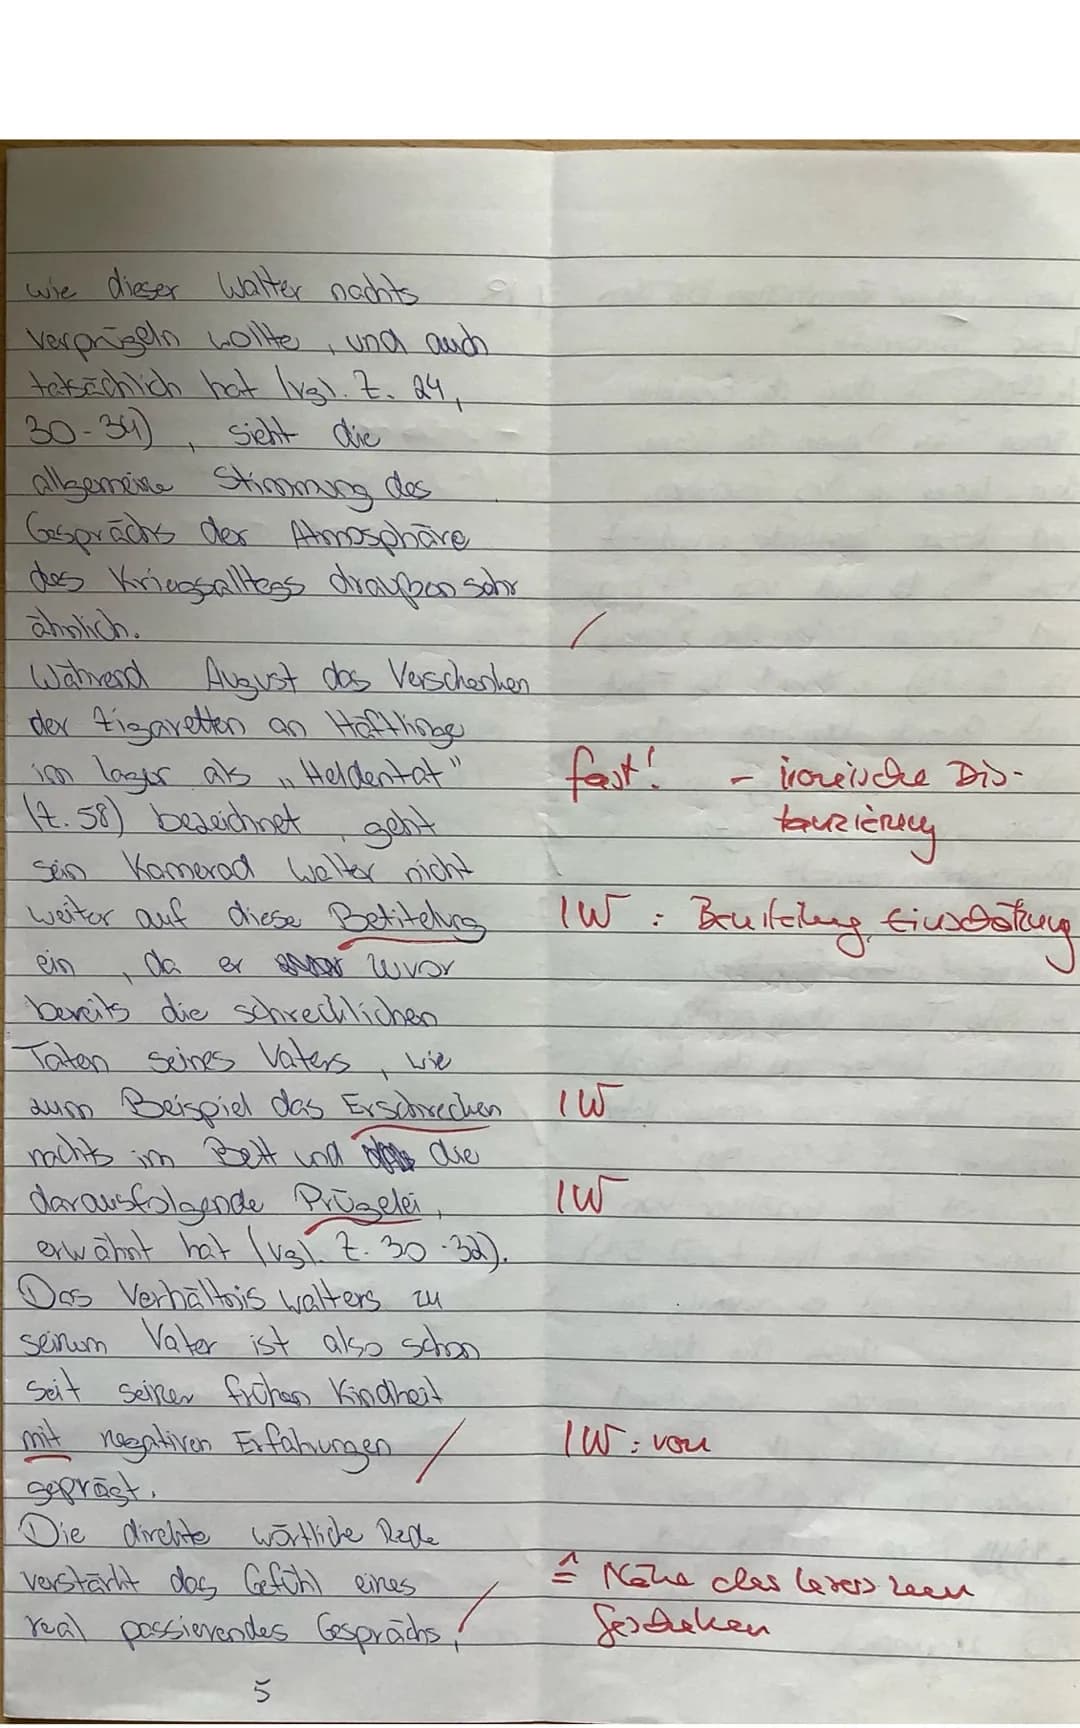 wie dieser Walter nachts
verprügeln wollte, und auch
tatsächlich hat (vgl. Z. 24,
30-34), sieht die
allgemeine Stimmung des
Gesprächs der Atmosphäre
des Kriegsalltags draußen sehr
ähnlich.
Während August das Verschenken
der Zigaretten an Häftlinge
im Lager als „Heldentat" fast! - ironische Dis-
(Z. 58) bezeichnet, geht tanzierung
sein Kamerad Walter nicht
weiter auf diese Betitelung IW : Beurteilung, Einschätzung
ein, da er zuvor
bereits die schrecklichen
Taten seines Vaters, wie
zum Beispiel das Erschrecken IW
nachts im Bett und die
darausfolgende Prügelei, IW
erwähnt hat (vgl. Z. 30-32).
Das Verhältnis Walters zu
seinem Vater ist also schon
seit seiner frühen Kindheit
mit negativen Erfahrungen IW: von
geprägt.
Die direkte wörtliche Rede
verstärkt das Gefühl eines ≙ Nähe des Lesers zum
real passierendes Gesprächs, Geschehen
5